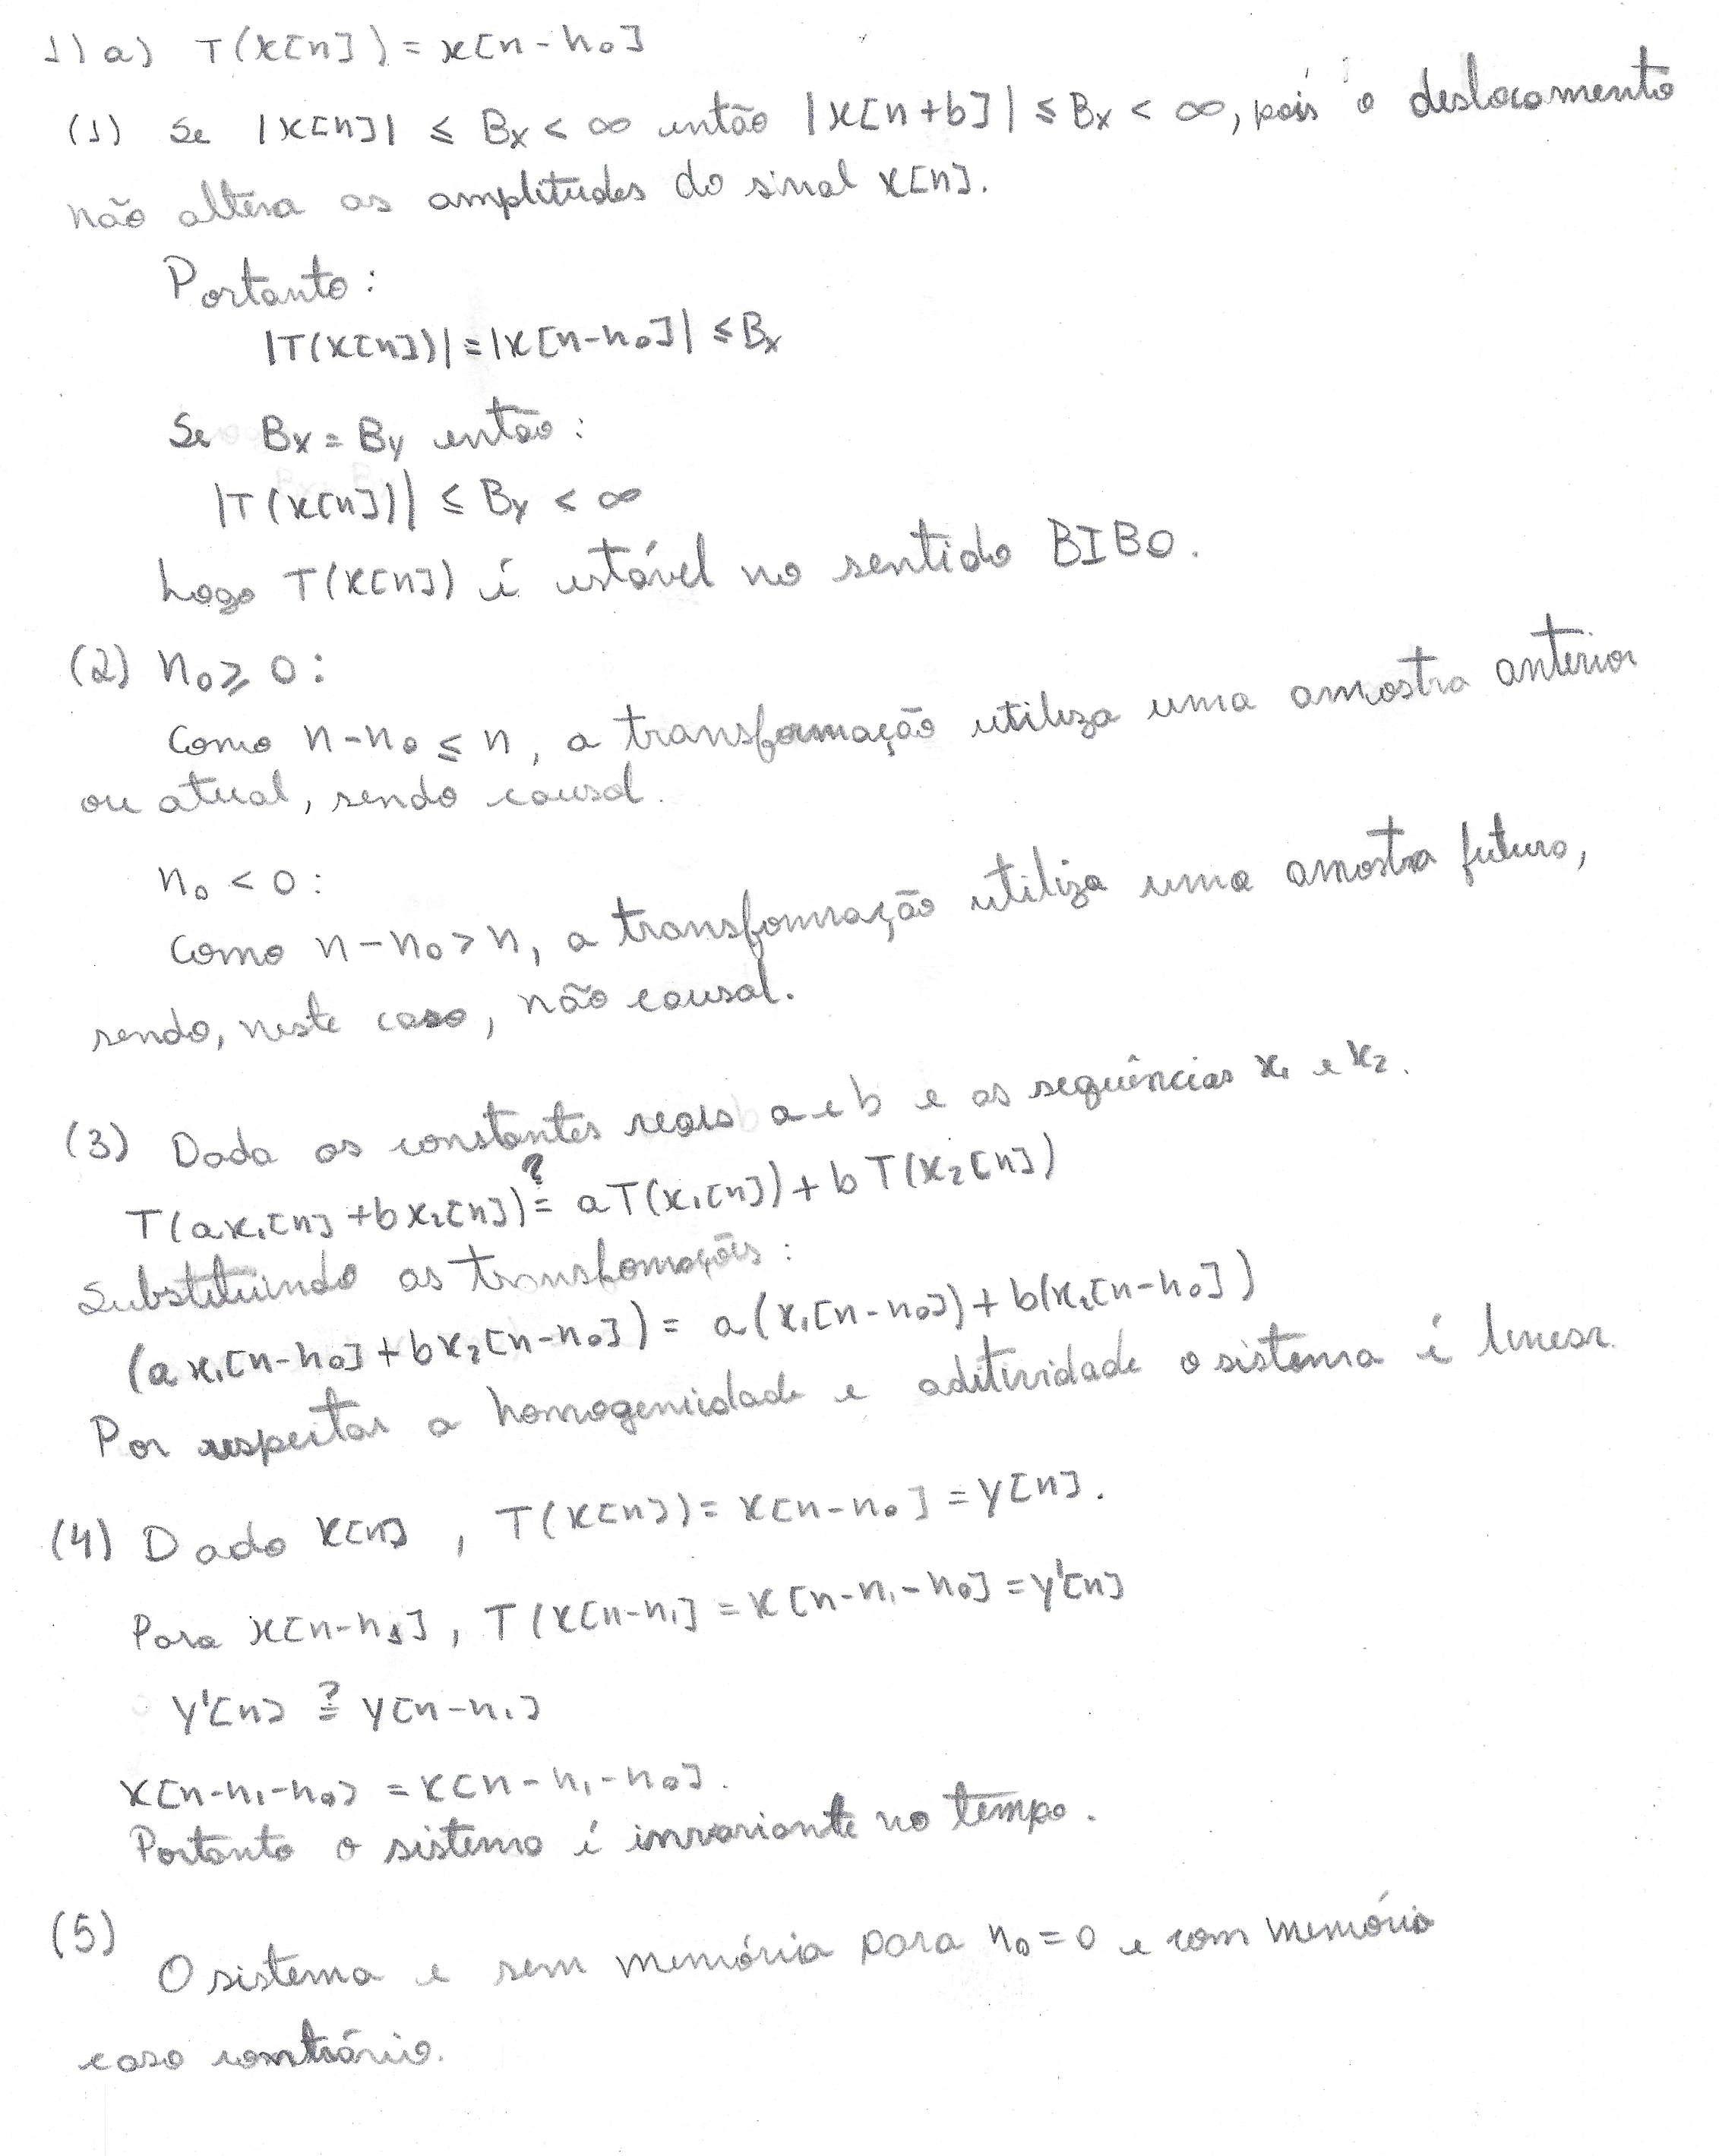 1) a) T(x[n]) = x[n-n₀]
(1) Se |x[n]| ≤ Bx < ∞ então |x[n+b]| ≤ Bx < ∞, pois o deslocamento
não altera as amplitudes do sinal x[n].
Portanto:
|T(x[n])| = |x[n-n₀]| ≤ Bx
Se Bx = By então:
|T(x[n])| ≤ By < ∞
Logo T(x[n]) é estável no sentido BIBO.
(2) n₀ ≥ 0:
Como n-n₀ ≤ n, a transformação utiliza uma amostra anterior
ou atual, sendo causal.
n₀ < 0:
Como n-n₀ > n, a transfomração utiliza uma amostra futura,
sendo, neste caso, não causal.
(3) Dada as constantes reais a e b e as sequências x₁ e x₂.
T(ax₁[n] + bx₂[n]) ≟ aT(x₁[n]) + bT(x₂[n])
Substituindo as transfomações:
(ax₁[n-n₀] + bx₂[n-n₀]) = a(x₁[n-n₀]) + b(x₂[n-n₀])
Por respeitar a homogeneidade e aditividade o sistema é linear.
(4) Dado x[n], T(x[n]) = x[n-n₀] = y[n].
Para x[n-n₁], T(x[n-n₁] = x[n-n₁-n₀] = y'[n]
y'[n] ≟ y[n-n₁]
x[n-n₁-n₀] = x[n-n₁-n₀].
Portanto o sistema é invariante no tempo.
(5)
O sistema e sem memória para n₀=0 e com memória
caso contrário.